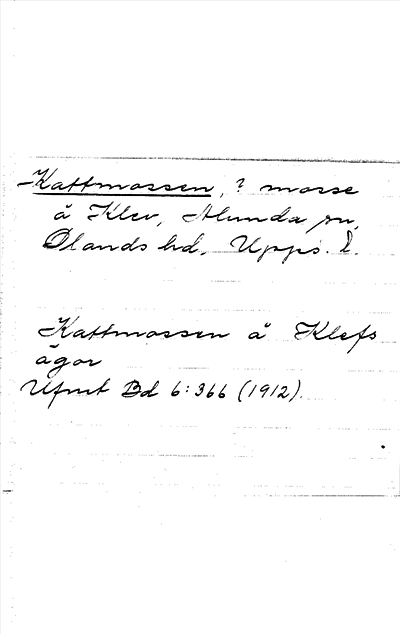 Kattmossen, ? mosse
å Klev, Alunda sn,
Olands hd, Upps. l.
Kattmossen å Klefs
ägor
Ufmt Bd 6:366 (1912).